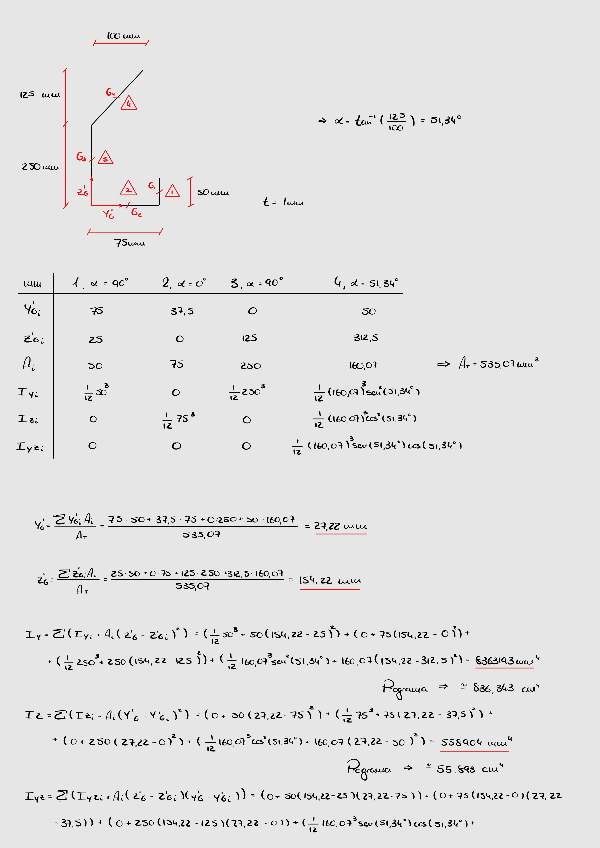 100 mm
125 mm
G₄
4
⇒ α = tan⁻¹ (125/100) = 51,34°
250 mm
G₃ 3
z'G 2 G₁ 1 50 mm
y'G G₂ t = 1mm
75mm
mm 1, α = 90° 2, α = 0° 3, α = 90° 4, α = 51,34°
Y'Gi 75 37,5 0 50
z'Gi 25 0 125 312,5
Ai 50 75 250 160,07 ⇒ AT = 535,07 mm²
Iyi 1/12 50³ 0 1/12 250³ 1/12 (160,07)³ sen²(51,34°)
Izi 0 1/12 75³ 0 1/12 (160,07)³ cos²(51,34°)
Iyzi 0 0 0 1/12 (160,07)³ sen(51,34°) cos(51,34°)
Y'G = ΣY'Gi Ai / AT = 75·50 + 37,5·75 + 0·250 + 50·160,07 / 535,07 = 27,22 mm
z'G = Σz'Gi Ai / AT = 25·50 + 0·75 + 125·250 + 312,5·160,07 / 535,07 = 154,22 mm
Iy = Σ(Iyi + Ai (z'G - z'Gi)²) = (1/12 50³ + 50(154,22 - 25)²) + (0 + 75(154,22 - 0)²) +
+ (1/12 250³ + 250(154,22 - 125)²) + (1/12 160,07³ sen²(51,34°) + 160,07(154,22 - 312,5)²) = 8363193 mm⁴
Programa ⇒ = 836,343 cm⁴
Iz = Σ(Izi + Ai (Y'G - Y'Gi)²) = (0 + 50(27,22 - 75)²) + (1/12 75³ + 75(27,22 - 37,5)²) +
+ (0 + 250(27,22 - 0)²) + (1/12 160,07³ cos²(51,34°) + 160,07(27,22 - 50)²) = 558904 mm⁴
Programa ⇒ = 55,898 cm⁴
Iyz = Σ(Iyzi + Ai (z'G - z'Gi)(y'G - y'Gi)) = (0 + 50(154,22-25)(27,22-75)) + (0 + 75(154,22-0)(27,22
- 37,5)) + (0 + 250(154,22 - 125)(27,22 - 0)) + (1/12 160,07³ sen(51,34°) cos(51,34°) +